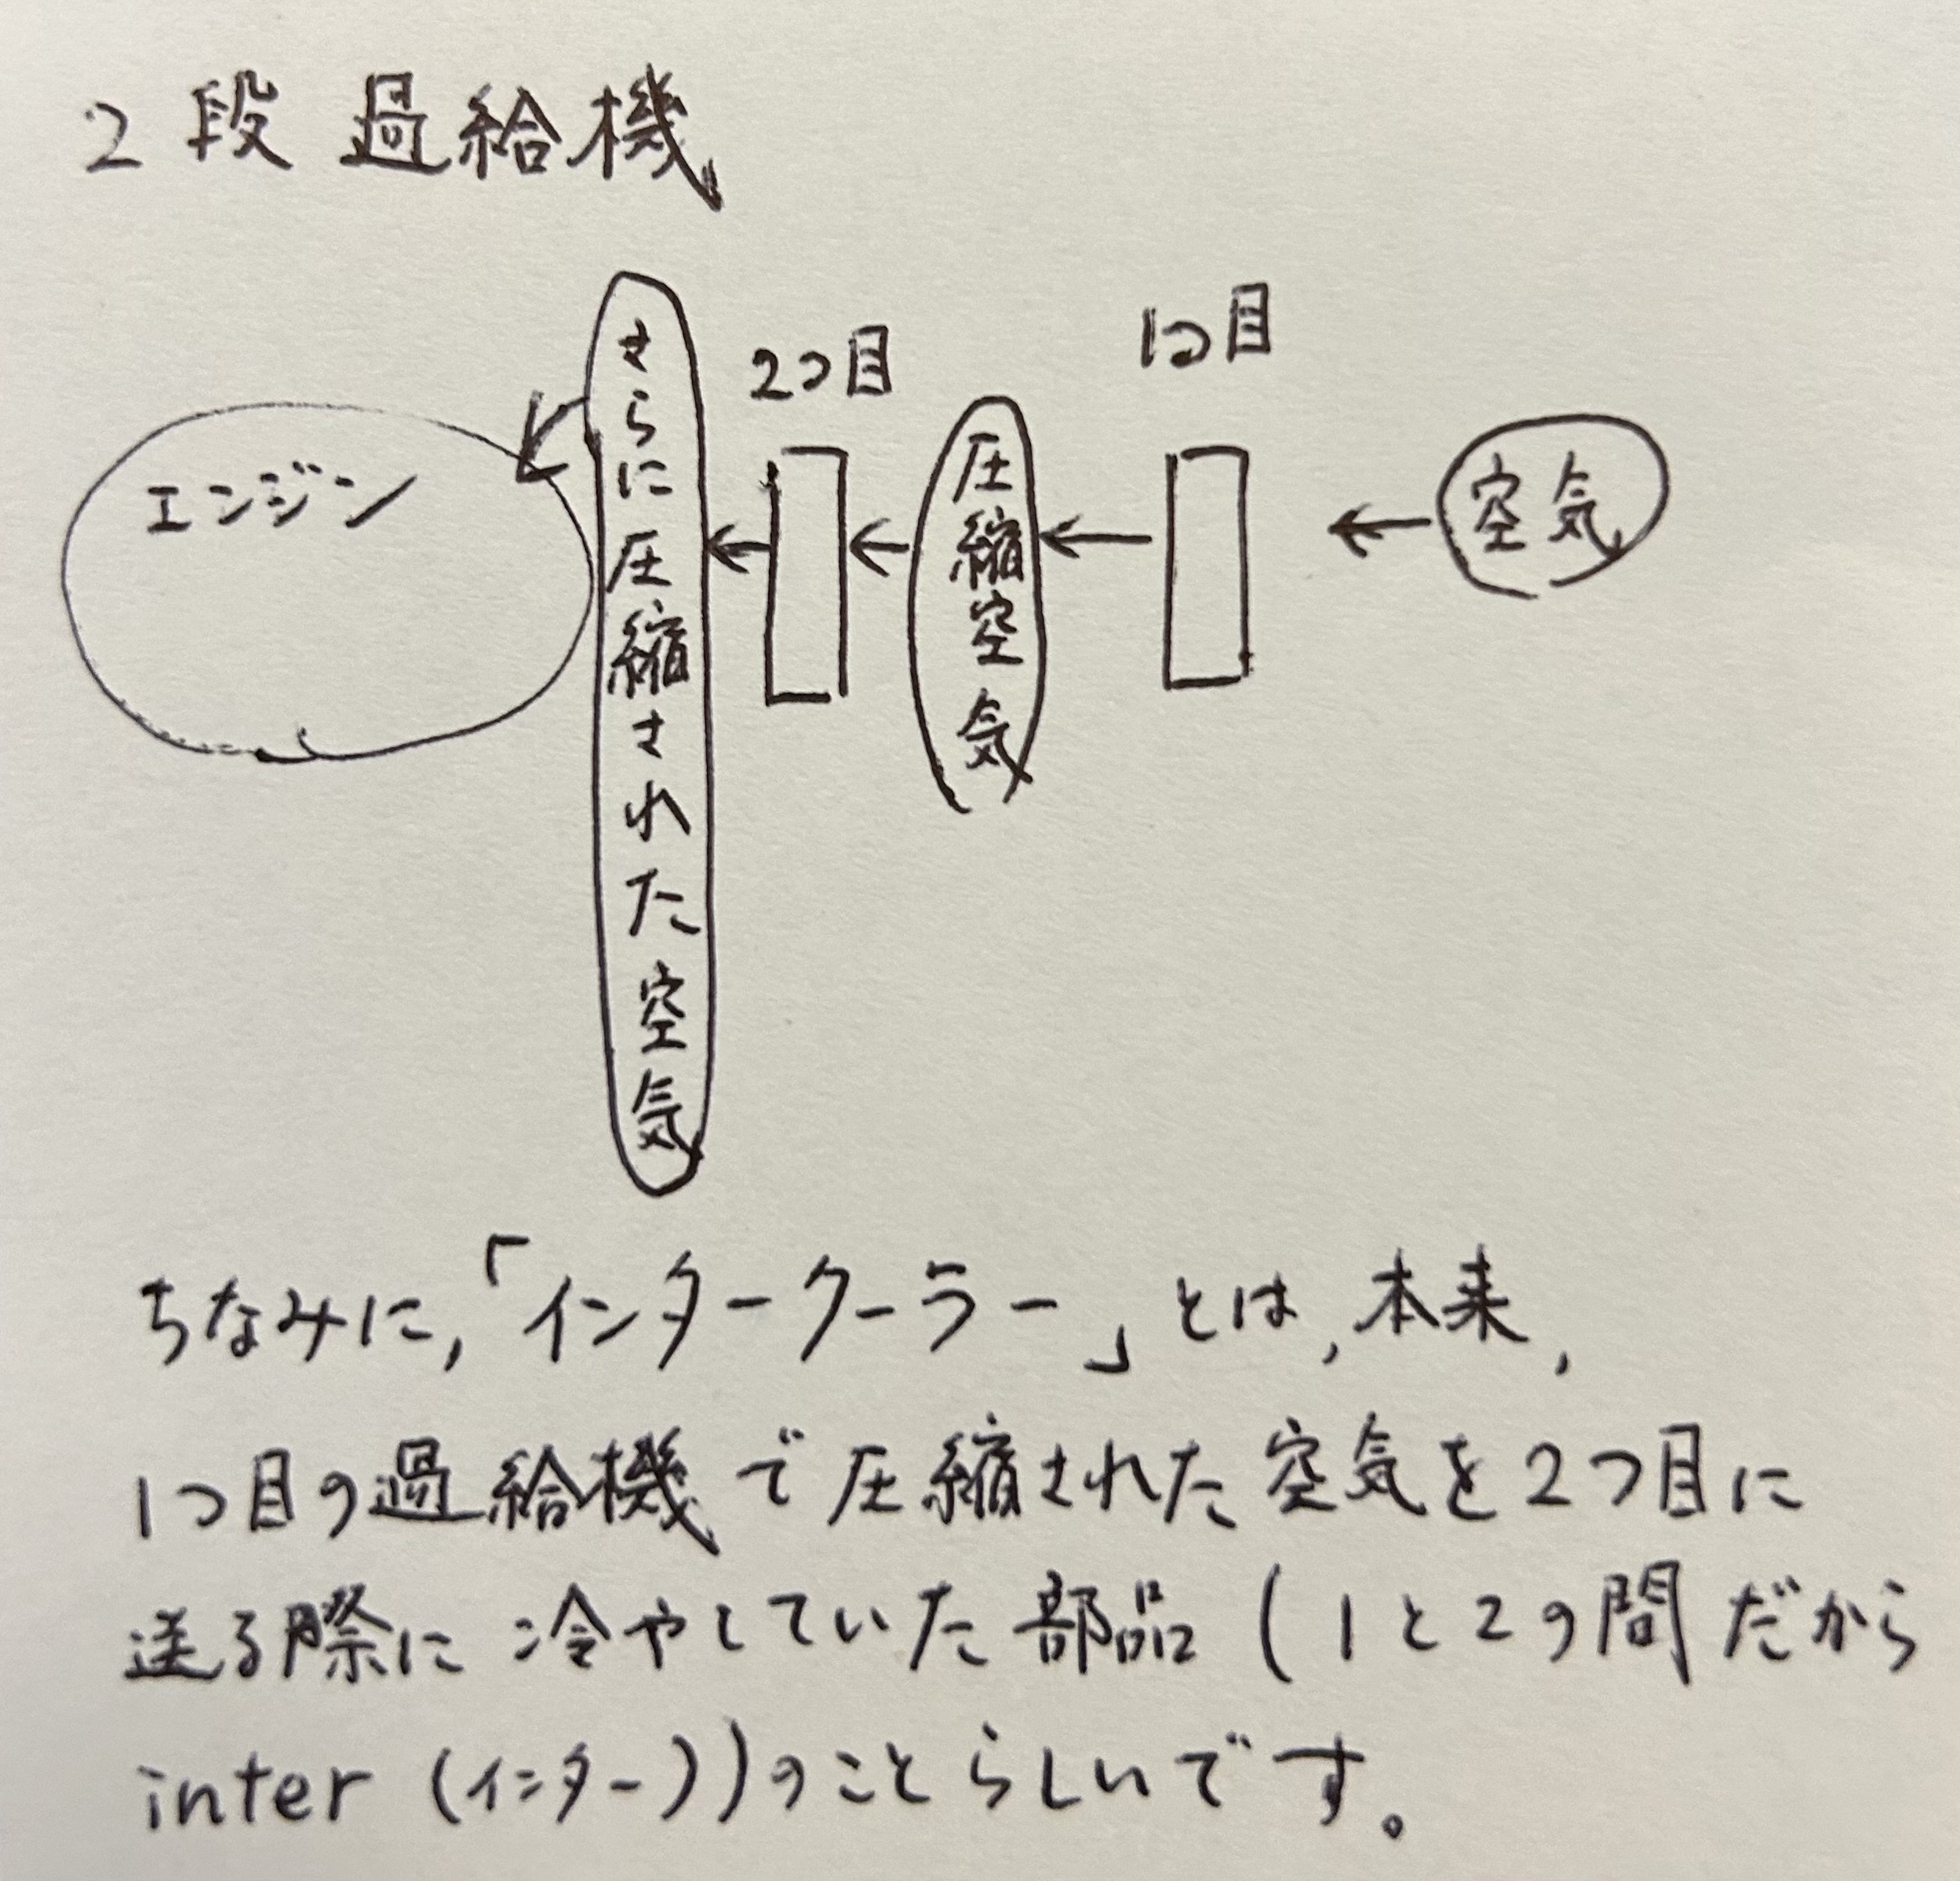 2段過給機
さらに圧縮された空気
2つ目
1つ目
エンジン
圧縮空気
空気
ちなみに,「インタークーラー」とは,本来,
1つ目の過給機で圧縮された空気を2つ目に
送る際に冷やしていた部品(1と2の間だから
inter(インター))のことらしいです。